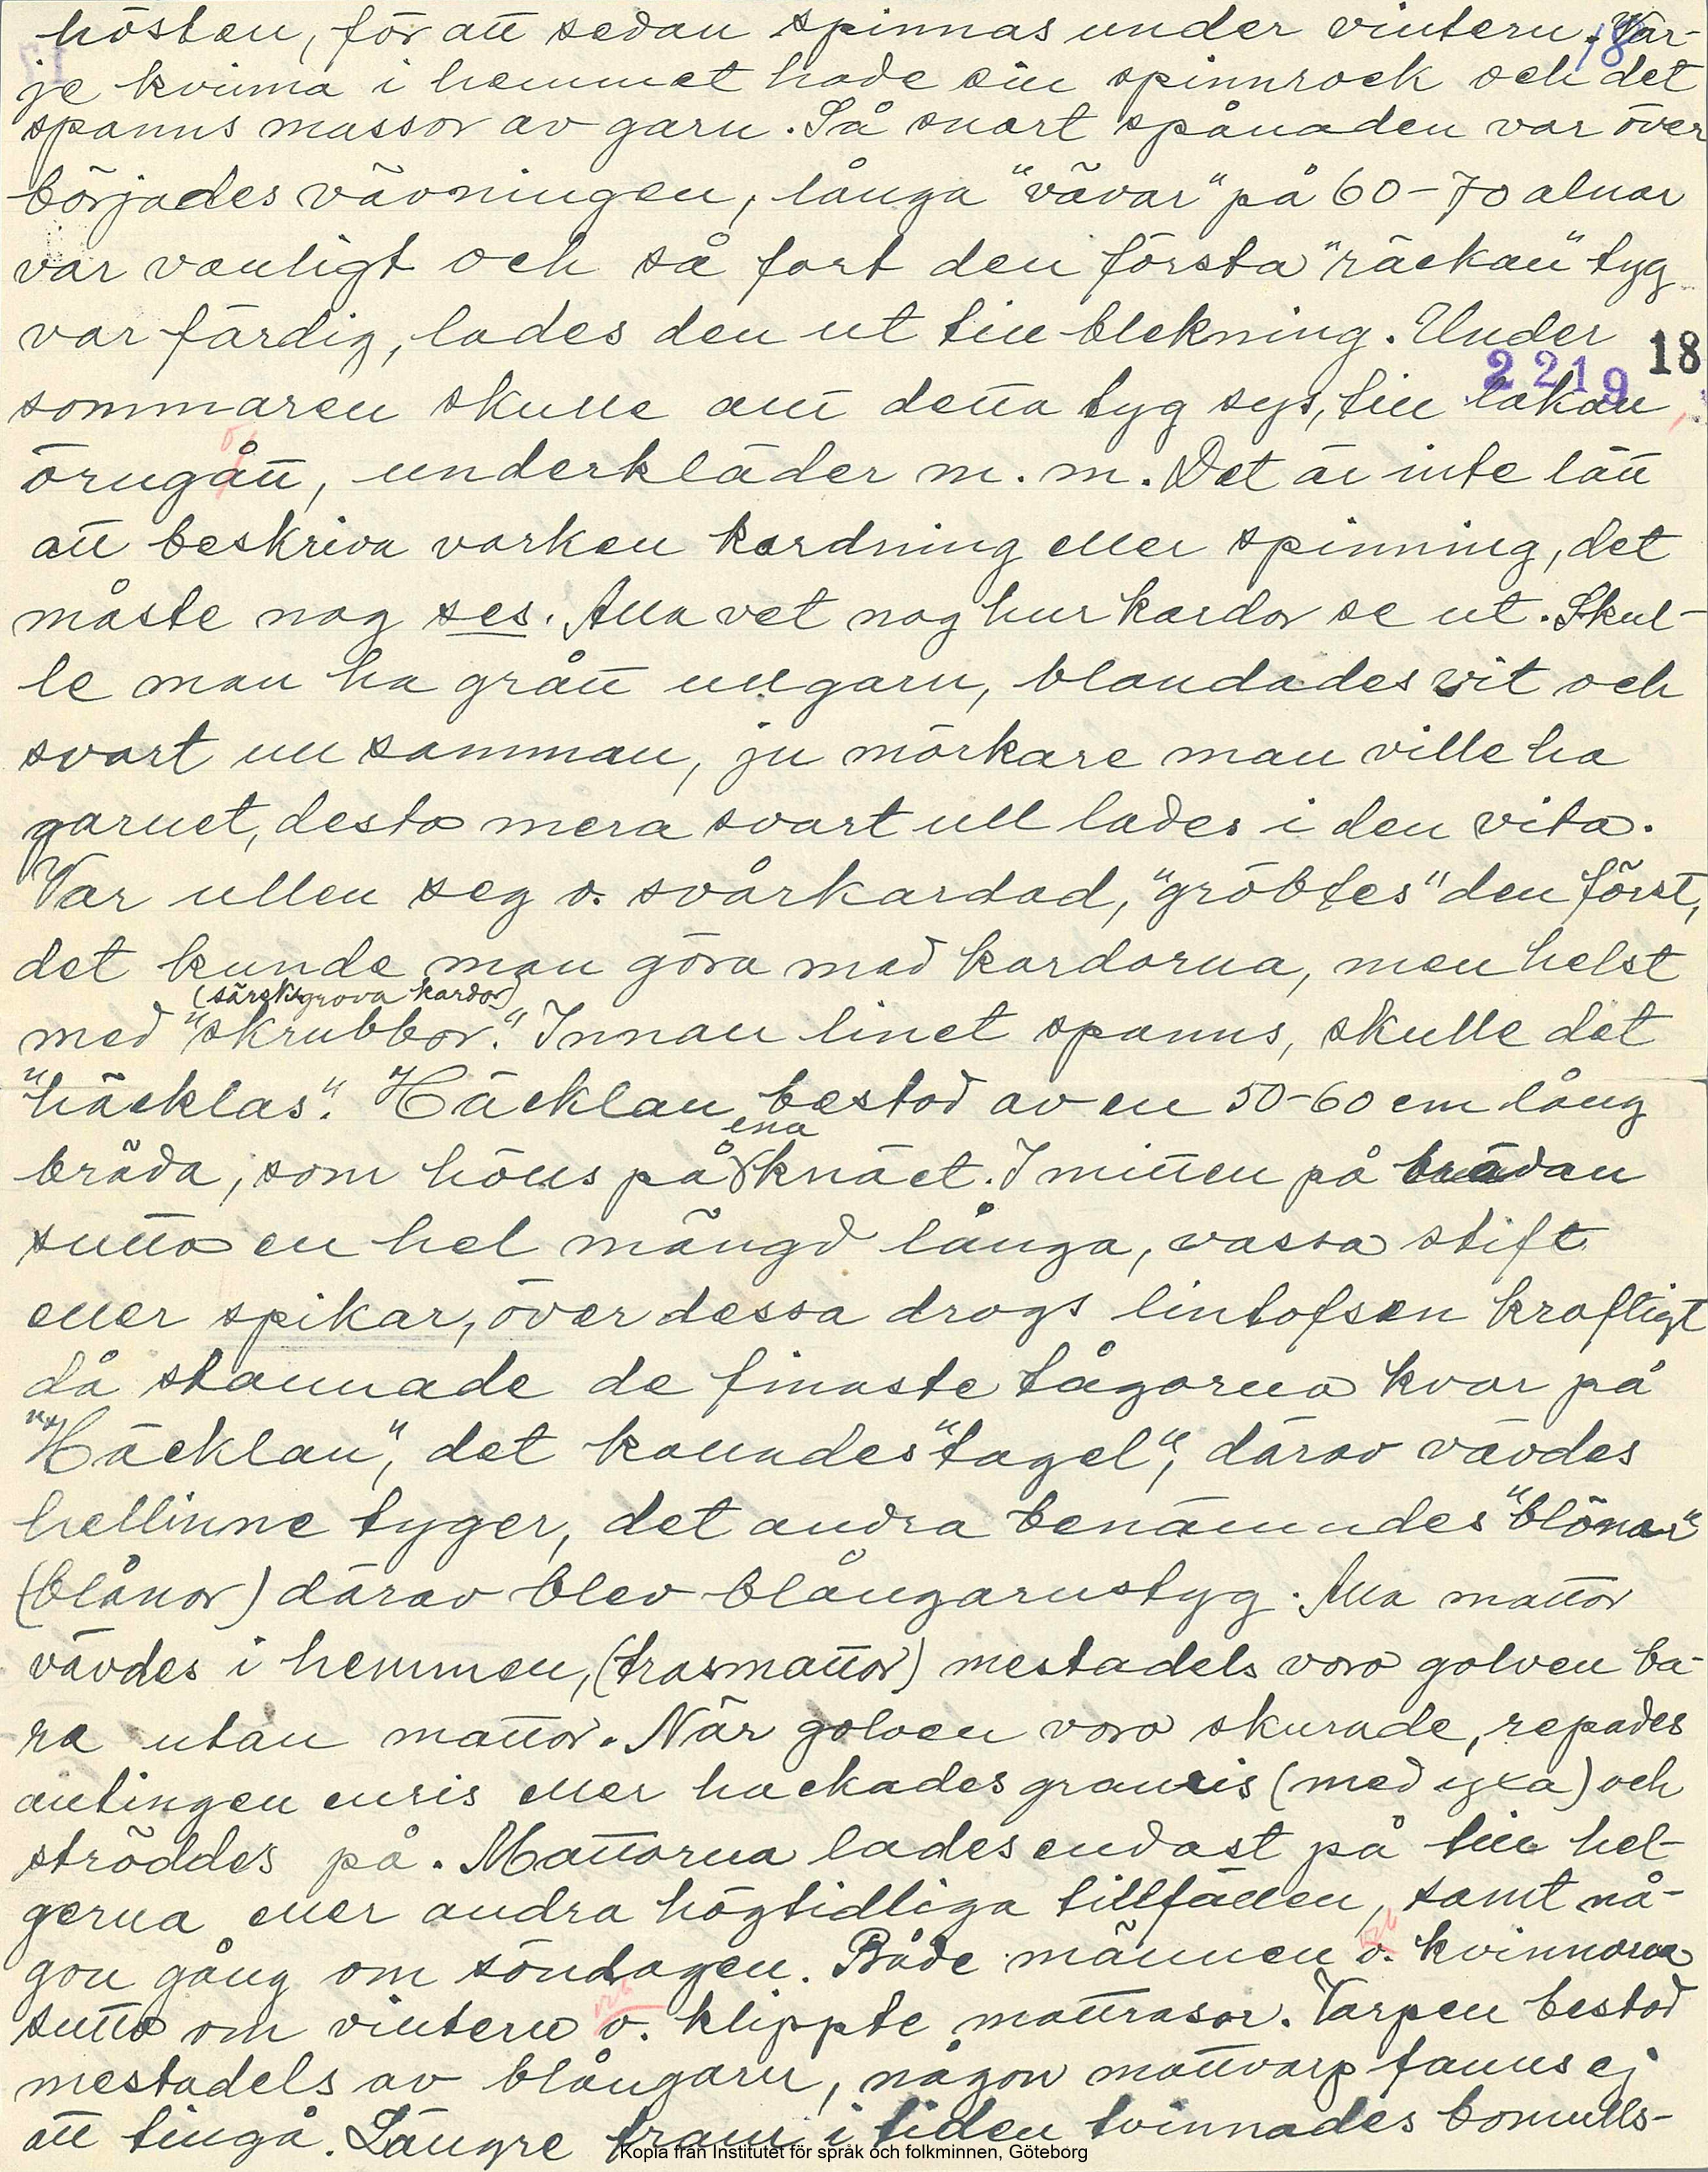 hösten, för att sedan spinnas under vintern. Var-
18
je kvinna i hemmet hade sin spinnrock och det
spanns massor av garn. Så snart spånaden var över
börjades vävningen, långa "vävar" på 60-70 alnar
var vanligt och så fort den första "räckan" tyg
var färdig, lades den ut till blekning. Under
18
2219
sommaren skulle allt detta tyg sys, till lakan,
örngått, underkläder m. m. Det är inte lätt
att beskriva varken kardning eller spinning, det
måste nog ses. Alla vet nog hur kardor se ut. Skul-
le man ha grått ullgarn, blandades vit och
svart ull samman, ju mörkare man ville ha
garnet, desto mera svart ull lades i den vita.
Var ullen seg o. svårkardad, "gröbtes" den först,
det kunde man göra med kardorna, men helst
(särsk. grova kardor)
med "skrubbor". Innan linet spanns, skulle det
"häcklas". Häcklan bestod av en 50-60 cm lång
ena
bräda, som hölls på knäet. I mitten på brädan
sutto en hel mängd långa, vassa stift
eller spikar, över dessa drogs lintofsen kraftigt
då stannade de finaste tågorna kvar på
"Häcklan", det kallades "tagel", därav vävdes
hellinne tyger, det andra benämndes "blönor"
(blånor) därav blev blångarnstyg. Alla mattor
vävdes i hemmen, (trasmattor) mestadels voro golven ba-
ra utan mattor. När golven voro skurade, repades
antingen enris eller hackades granris (med yxa) och
ströddes på. Mattorna lades endast på till hel-
gerna eller andra högtidliga tillfällen, samt nå-
gon gång om söndagen. Både männen o. kvinnorna
sutto om vintern o. klippte mattrasor. Varpen bestod
mestadels av blångarn, någon mattvarp fanns ej
att tingå. Längre fram i tiden tvinnades bomulls-
Kopia från Institutet för språk och folkminnen, Göteborg